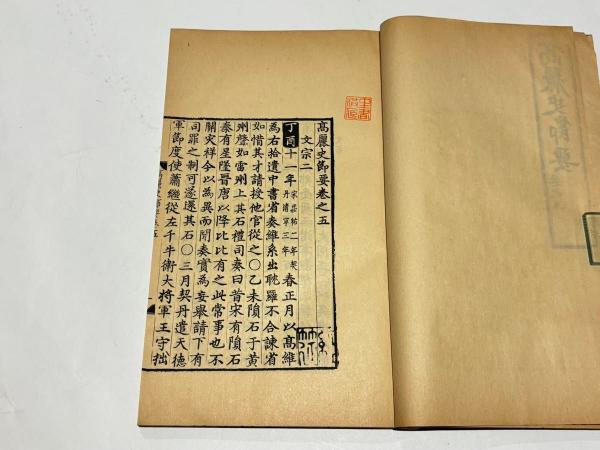 高麗史節要卷之五
文宗二
丁酉十一年宋嘉祐二年契丹清寧三年春正月以高維
為右拾遺中書省奏維系出耽羅不合諫省
如惜其才請授他官從之○乙未隕石于黃
州聲如雷州上其石禮司奏曰昔宋有隕石
秦有星墜晉唐以降比比有之此常事也不
關灾祥今以為異而聞奏實為妄舉請下有
司罪之制可遂還其石○三月契丹遣天德
軍節度使蕭繼從左千牛衛大將軍王守拙
高麗史節要